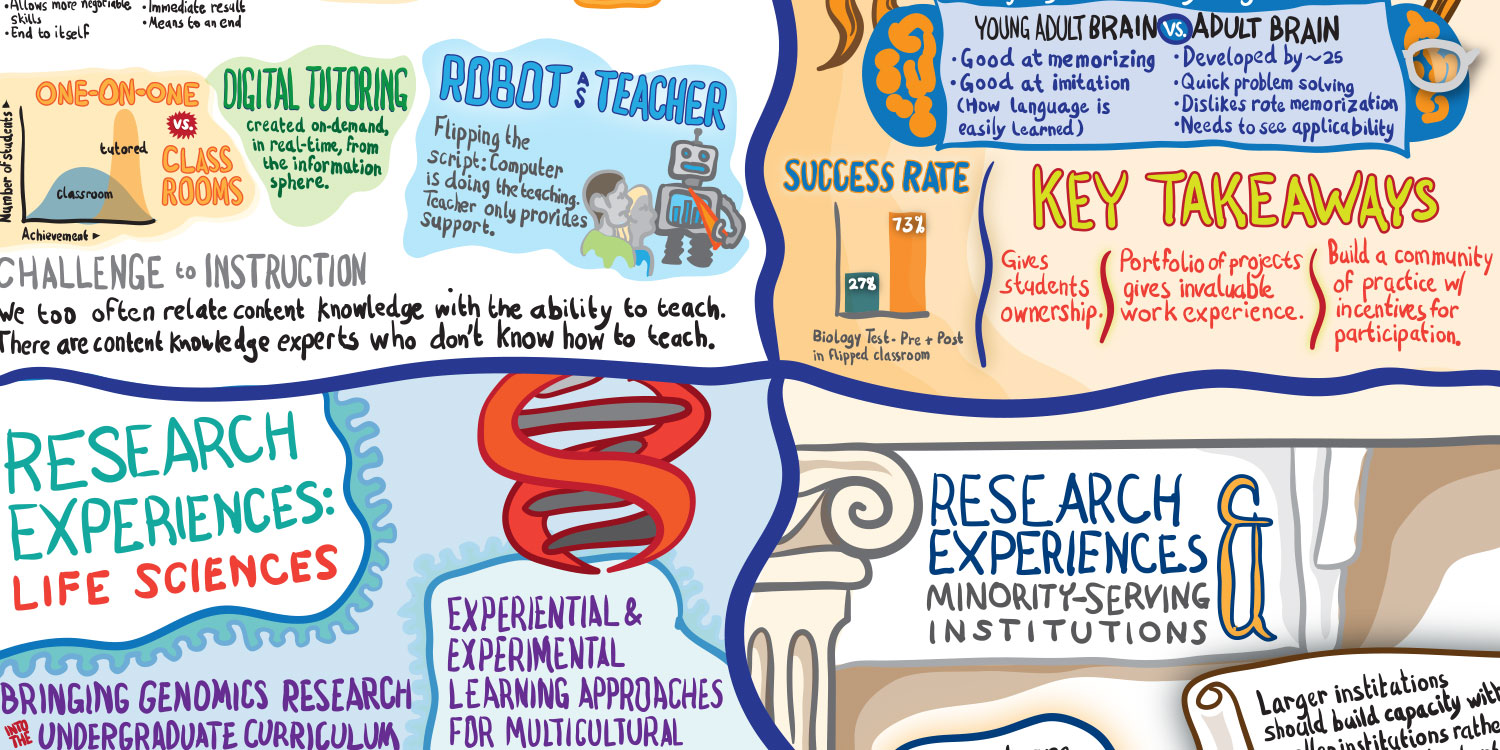 •Allows more negotiable
skills
•End to itself
•Immediate result
•Means to an end
ONE-ON-ONE
VS.
CLASS
ROOMS
Number of students
tutored
classroom
Achievement
DIGITAL TUTORING
created on-demand,
in real-time, from
the information
sphere.
ROBOT AS TEACHER
Flipping the
script: Computer
is doing the teaching.
Teacher only provides
support.
CHALLENGE to INSTRUCTION
We too often relate content knowledge with the ability to teach.
There are content knowledge experts who don't know how to teach.
YOUNG ADULT BRAIN VS. ADULT BRAIN
•Good at memorizing
•Good at imitation
(How language is
easily learned)
•Developed by ~25
•Quick problem solving
•Dislikes rote memorization
•Needs to see applicability
SUCCESS RATE
27%
73%
Biology Test- Pre + Post
in flipped classroom
KEY TAKEAWAYS
Gives
students
ownership.
Portfolio of projects
gives invaluable
work experience.
Build a community
of practice w/
incentives for
participation.
RESEARCH
EXPERIENCES:
LIFE SCIENCES
BRINGING GENOMICS RESEARCH
INTO THE UNDERGRADUATE CURRICULUM
EXPERIENTIAL &
EXPERIMENTAL
LEARNING APPROACHES
FOR MULTICULTURAL
RESEARCH
EXPERIENCES
&
MINORITY-SERVING
INSTITUTIONS
Larger institutions
should build capacity with
institutions rather